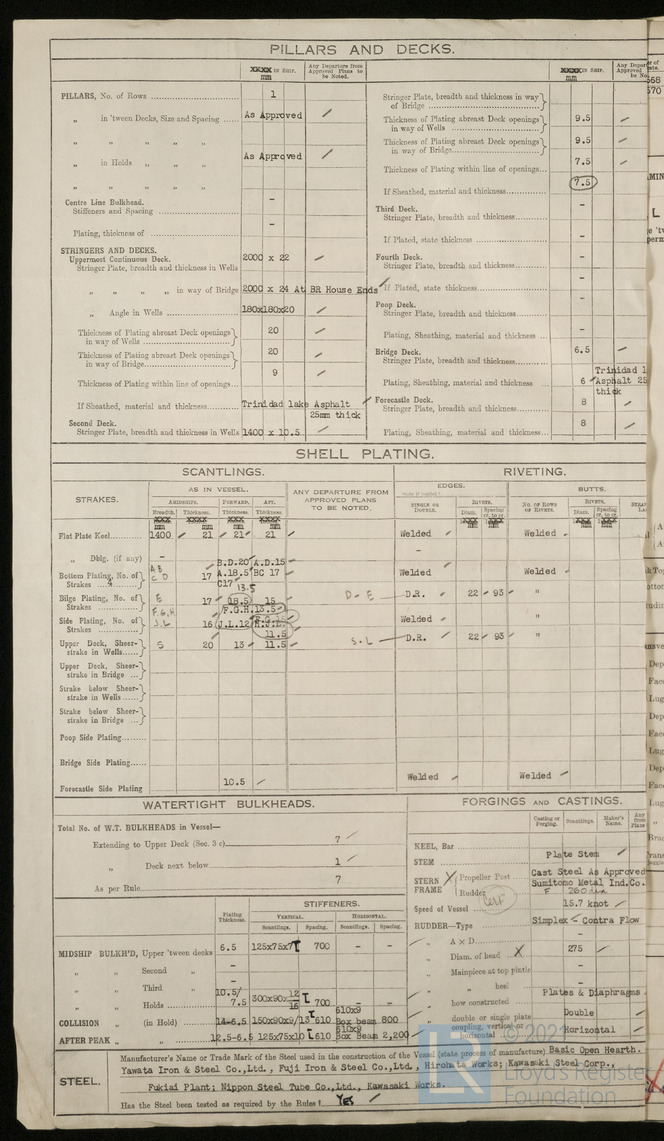 PILLARS AND DECKS.
in Ship. mm
Any Departure from Approved Plans to be Noted.
PILLARS, No. of Rows 1
" in 'tween Decks, Size and Spacing As Approved
" " " " "
" in Holds " " As Approved
" " " " "
Centre Line Bulkhead.
Stiffeners and Spacing -
Plating, thickness of -
STRINGERS AND DECKS.
Uppermost Continuous Deck.
Stringer Plate, breadth and thickness in Wells 2000 x 22
" " " " in way of Bridge 2000 x 24 At BR House Ends
" Angle in Wells 180x180x20
Thickness of Plating abreast Deck openings in way of Wells 20
Thickness of Plating abreast Deck openings in way of Bridge 20
Thickness of Plating within line of openings 9
If Sheathed, material and thickness Trinidad lake Asphalt 25mm thick
Second Deck.
Stringer Plate, breadth and thickness in Wells 1400 x 10.5
in Ship. mm
Stringer Plate, breadth and thickness in way of Bridge
Thickness of Plating abreast Deck openings in way of Wells 9.5
Thickness of Plating abreast Deck openings in way of Bridge 9.5
Thickness of Plating within line of openings 7.5
7.5
If Sheathed, material and thickness -
Third Deck.
Stringer Plate, breadth and thickness -
If Plated, state thickness -
Fourth Deck.
Stringer Plate, breadth and thickness -
If Plated, state thickness -
Poop Deck.
Stringer Plate, breadth and thickness -
Plating, Sheathing, material and thickness -
Bridge Deck.
Stringer Plate, breadth and thickness 6.5
Plating, Sheathing, material and thickness 6 Trinidad l Asphalt 25 thick
Forecastle Deck.
Stringer Plate, breadth and thickness 8
Plating, Sheathing, material and thickness 8
SHELL PLATING.
SCANTLINGS. RIVETING.
STRAKES.
AS IN VESSEL.
AMIDSHIPS. FORWARD. AFT.
Breadth. Thickness. Thickness. Thickness.
mm mm mm mm
ANY DEPARTURE FROM APPROVED PLANS TO BE NOTED.
EDGES. BUTTS.
SINGLE OR DOUBLE. RIVETS. Diam. Spacing cr. to cr.
No. OF ROWS OF RIVETS. RIVETS. Diam. Spacing cr. to cr.
Flat Plate Keel 1400 21 21 21 Welded Welded
" Dblg. (if any) - -
Bottom Plating, No. of Strakes A B C D 17 B.D.20 A.18.5 C17 A.D.15 BC 17 Welded Welded
Bilge Plating, No. of Strakes E 17 13.5 18.5 15 D - E D.R. 22 93 "
Side Plating, No. of Strakes F.G.H. J.L 16 F.G.H.13.5 J.L.12 11.5 Welded "
Upper Deck, Sheerstrake in Wells S 20 13 11.5 S.L D.R. 22 93 "
Upper Deck, Sheerstrake in Bridge
Strake below Sheerstrake in Wells
Strake below Sheerstrake in Bridge
Poop Side Plating
Bridge Side Plating
Forecastle Side Plating 10.5 Welded Welded
WATERTIGHT BULKHEADS.
Total No. of W.T. BULKHEADS in Vessel—
Extending to Upper Deck (Sec. 3 c) 7
" Deck next below 1
As per Rule 7
Plating Thickness.
STIFFENERS.
VERTICAL. HORIZONTAL.
Scantlings. Spacing. Scantlings. Spacing.
MIDSHIP BULKH'D, Upper 'tween decks 6.5 125x75x7 700 - -
" " Second " -
" " Third " -
" " Holds 10.5/7.5 300x90x12/16 700
COLLISION " (in Hold) 14-6.5 150x90x9/13 610 610x9 Box beam 800
AFTER PEAK " " 12.5-6.5 125x75x10 610 610x9 Box Beam 2,200
FORGINGS AND CASTINGS.
Casting or Forging. Scantlings. Maker's Name.
KEEL, Bar
STEM Plate Stem
STERN FRAME Propeller Post Cast Steel As Approved
Rudder Sumitomo Metal Ind.Co.
Cert
Speed of Vessel 15.7 knot
RUDDER—Type Simplex - Contra Flow
" A x D -
" Diam. of head 275
" Mainpiece at top pintle -
" " heel -
" how constructed Plates & Diaphragms
" double or single plate Double
" coupling, vertical or horizontal Horizontal
STEEL.
Manufacturer's Name or Trade Mark of the Steel used in the construction of the Vessel (state process of manufacture) Basic Open Hearth.
Yawata Iron & Steel Co.,Ltd., Fuji Iron & Steel Co.,Ltd., Hirohata Works; Kawasaki Steel Corp.,
Fukiai Plant; Nippon Steel Tube Co.,Ltd., Kawasaki Works.
Has the Steel been tested as required by the Rules? Yes
Lloyd's Register Foundation